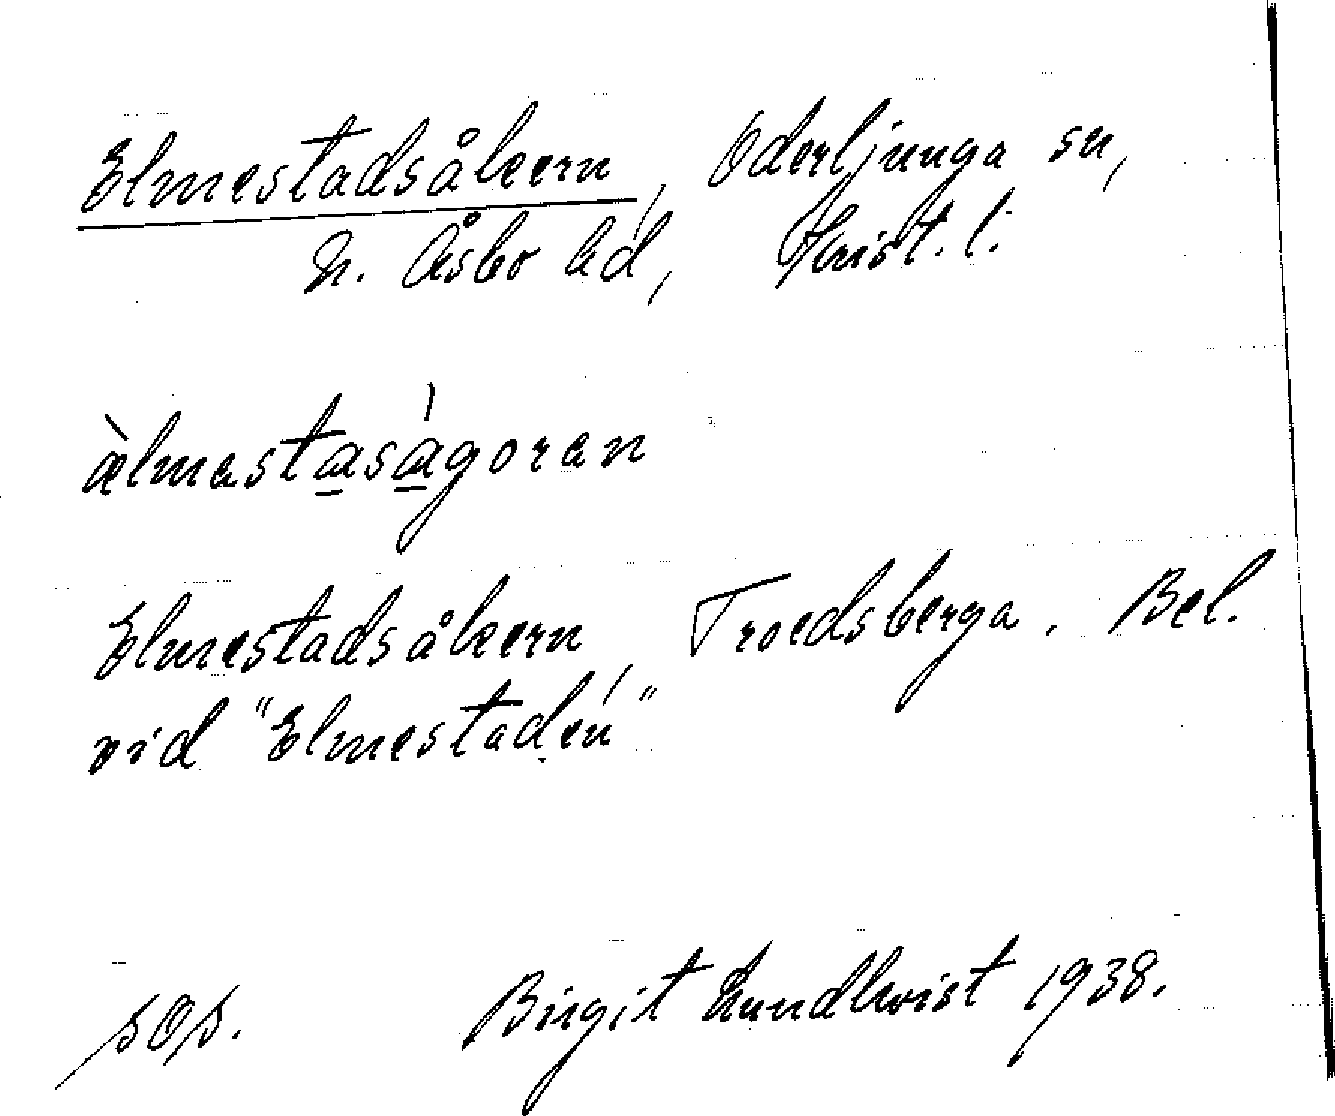 Elmestadsåkern, Oderljunga sn,
N. Åsbo hd, Krist. l.
àlmastasàgoran
Elmestadsåkern, Troedsberga. Bel.
vid "Elmestaden"
sOs. Birgit Lundkvist 1938.